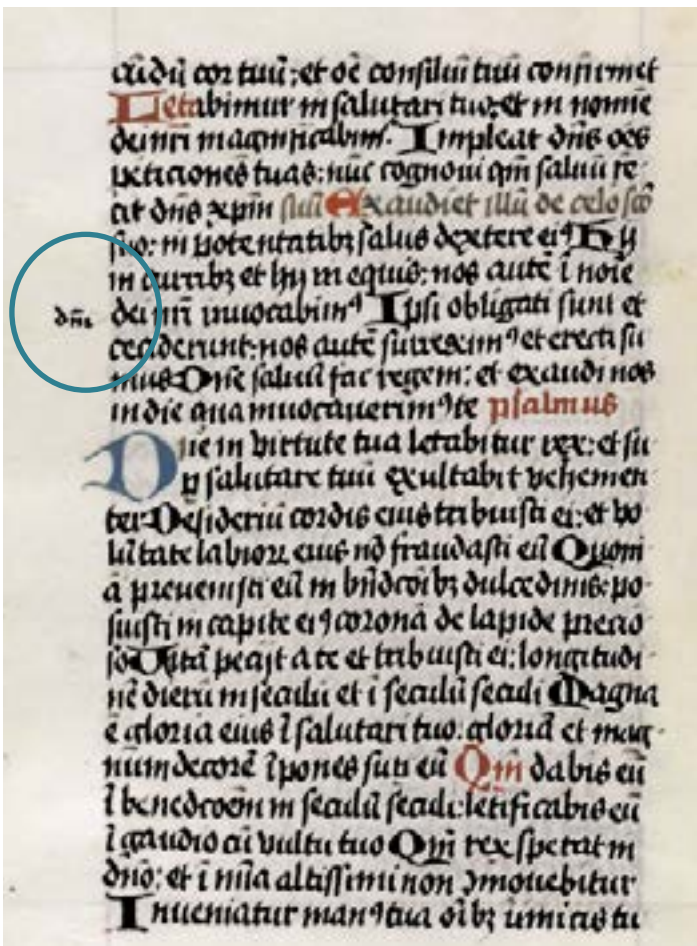 cūdū cor tuū; et oē consiliū tuū confirmet
Letabimur in salutari tuo; et in nomīe
dei nrī magnificabim᷒. Impleat dn̄s oēs
peticiones tuas: nūc cognoui qm̄ saluū fe
cit dn̄s xp̄m suū Exaudiet illū de celo scō
suo: in potentatibꝫ salus dextere eiꝰ Hij
in curribꝫ et hij in equis: nos autē ī noīe
dn̄i dei nrī inuocabimꝰ Ipsi obligati sunt et
ceciderunt: nos autē surreximꝰ et erecti su
mus Dn̄e saluū fac regem: et exaudi nos
in die qua inuocauerimꝰ te psalmus
Dn̄e in virtute tua letabitur rex: et su
p̱ salutare tuū exultabit vehemen
ter Desideriū cordis eius tribuisti ei: et vo
lūtate labioꝝ eius nō fraudasti eū Quoni
ā preuenisti eū in bn̄dcōibꝫ dulcedinis: po
suisti in capite eiꝰ coronā de lapide precio
so Uitā peciit a te et tribuisti ei: longitudi
nē dierū in seculū et ī seculū seculi Magna
ē gloria eius ī salutari tuo: gloriā et mag
num decorē īpones sup̱ eū Qm̄ dabis eū
ī benedcōem in seculū seculi: letificabis eū
ī gaudio cū vultu tuo Qm̄ rex sperat in
dn̄o: et ī mīa altissimi non ꝯmouebitur
Inueniatur manꝰ tua oībꝫ inimicis tu